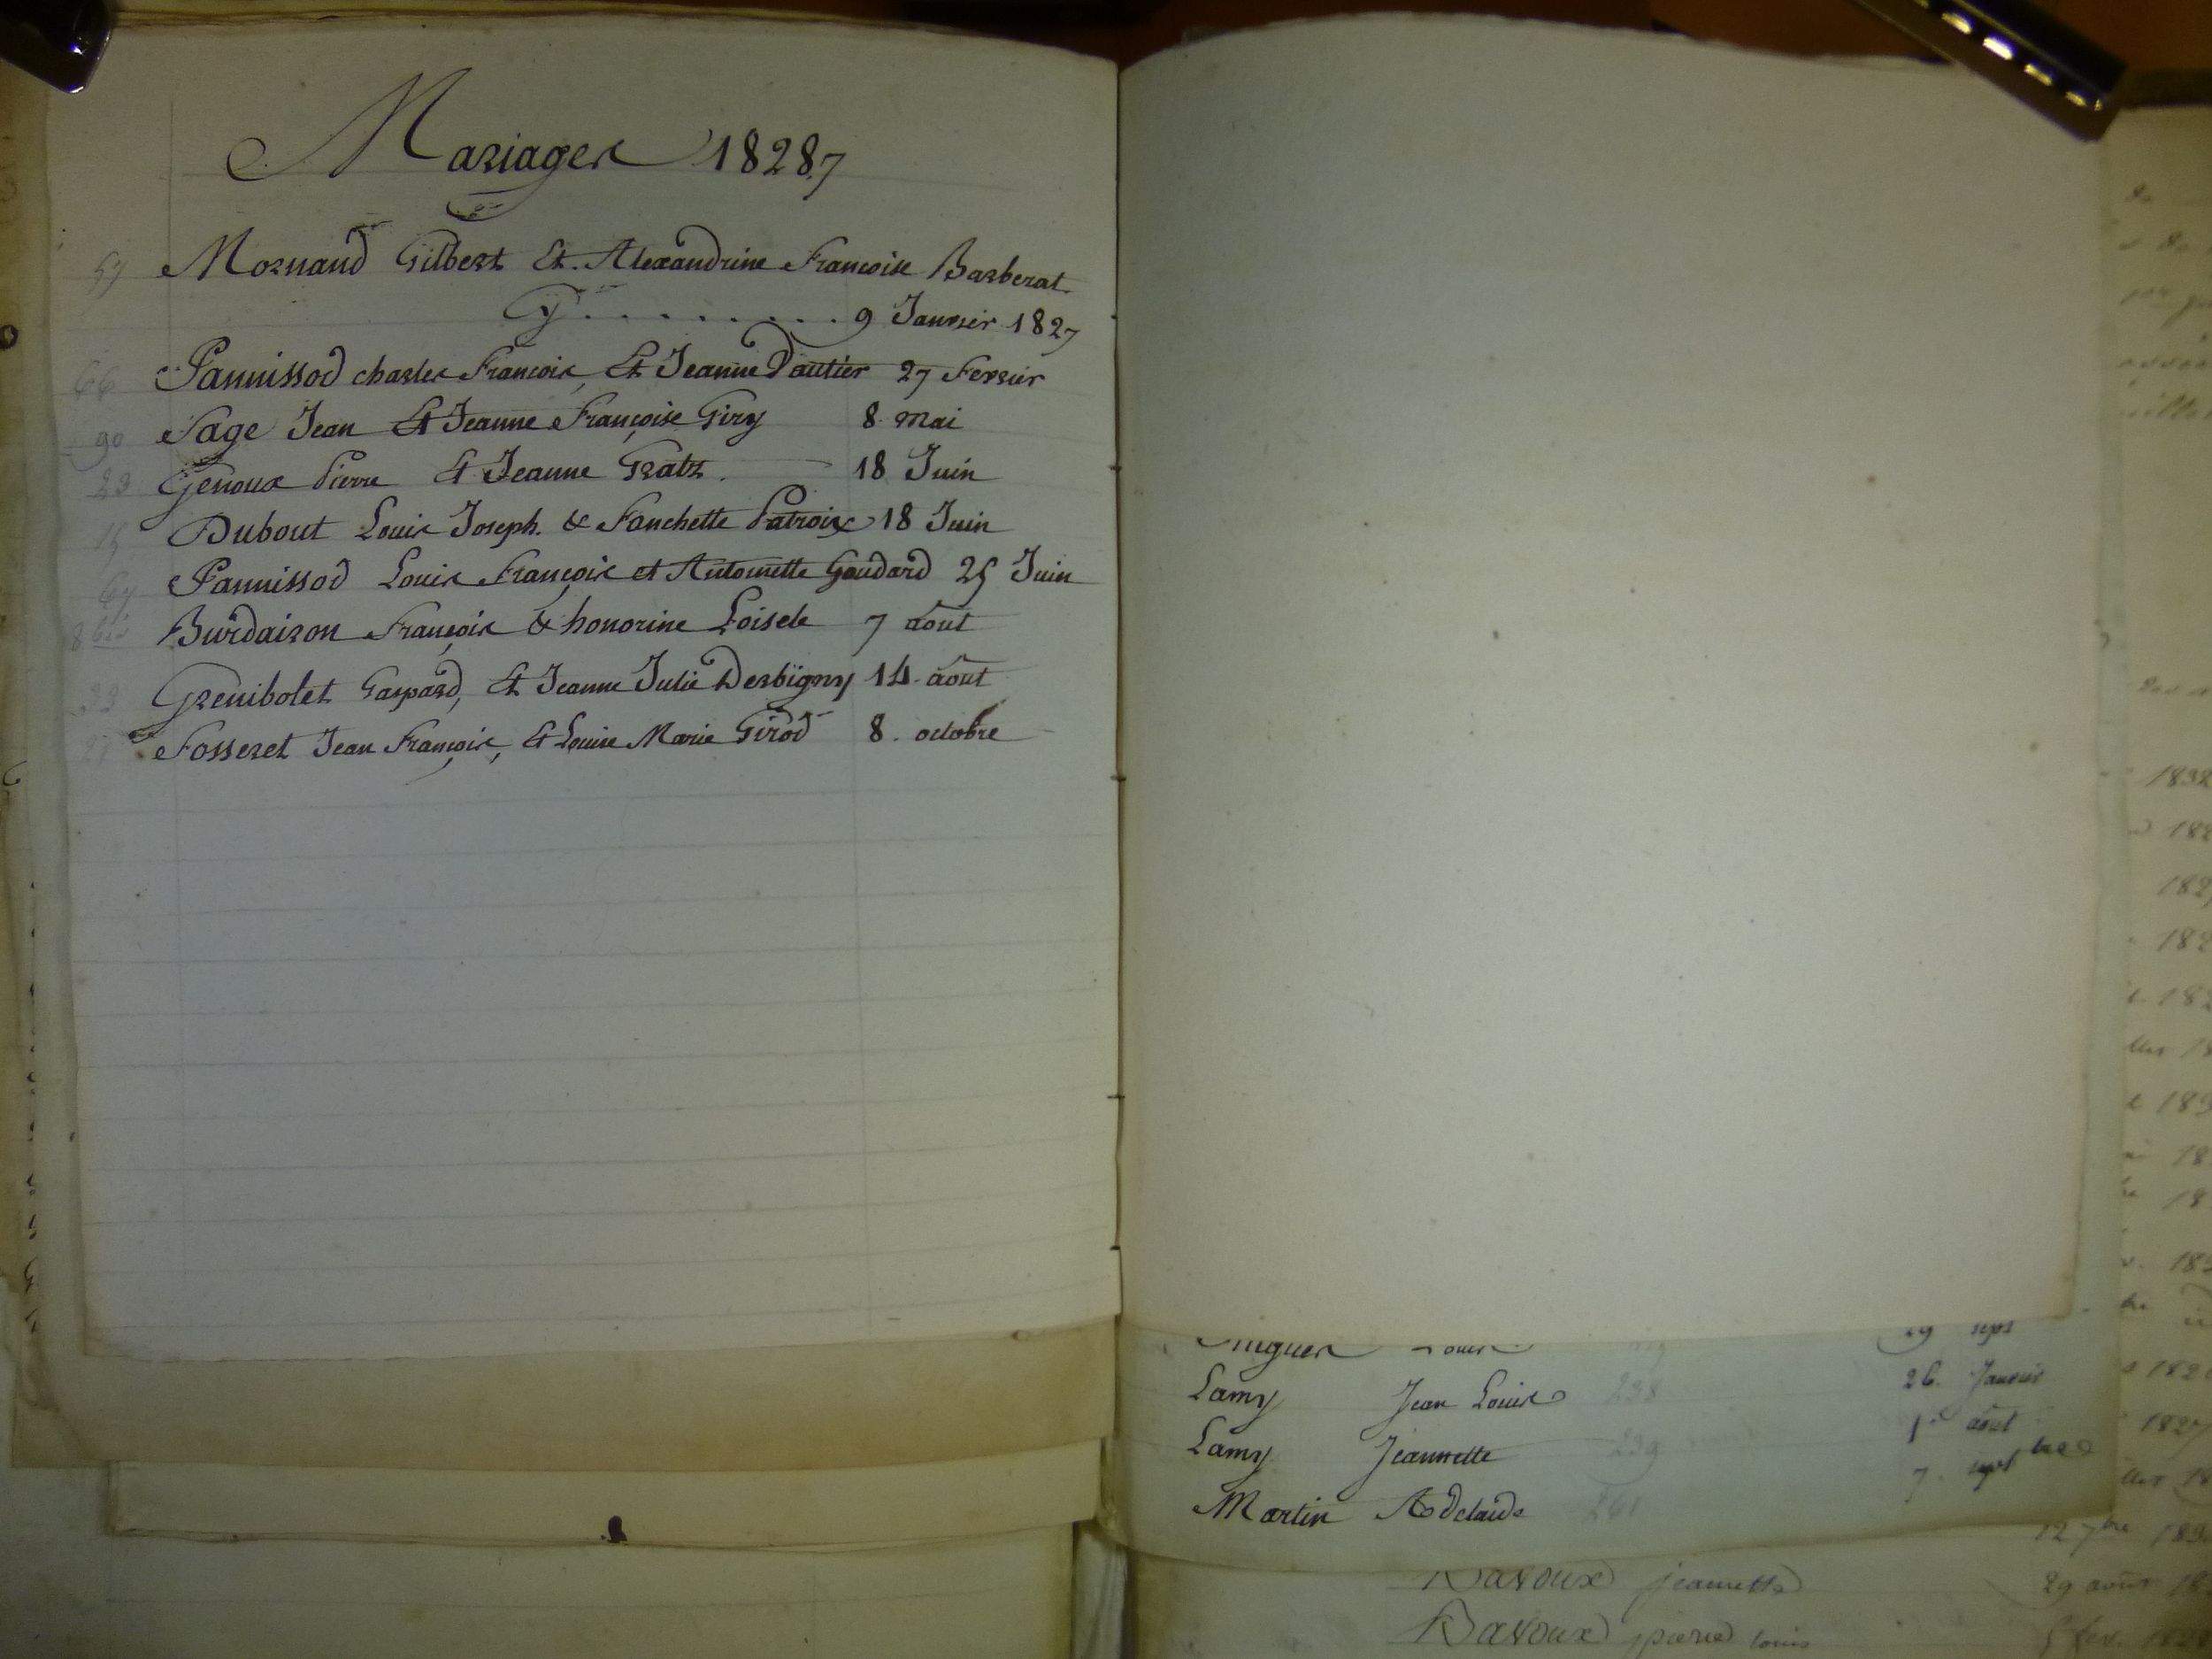 Mariages 1828.7
57 Mornand Gilbert Et. Alexandrine Francoise Barberat
Cy . . . . . . . . . . 9 Janvier 1827
66 Pannissod charles Francois, Et Jeanne Dautier 27 Fevrier
90 Sage Jean Et Jeanne Françoise Giry 8. mai
29 Genoux Pierre Et Jeanne Gratz. 18 Juin
15 Dubout Louis Joseph. & Fanchette Patroix 18 Juin
67 Pannissod Louis François et Antoinette Gaudard 25 Juin
8 bis Burdairon François & honorine Loisele 7 aout
33 Grenibolet Gaspard, Et Jeanne Julie Desbigny 14. aout
27 Fosseret Jean François, Et Louise Marie Girod 8. octobre
29 sept
Lamy Jean Louis 238 26. Janvier
Lamy Jeannette 239 1er aout
Martin Adelaide 241 7. septbre
Bavoux jeannette 29 aout
Bavoux pierre louis 5 fev.